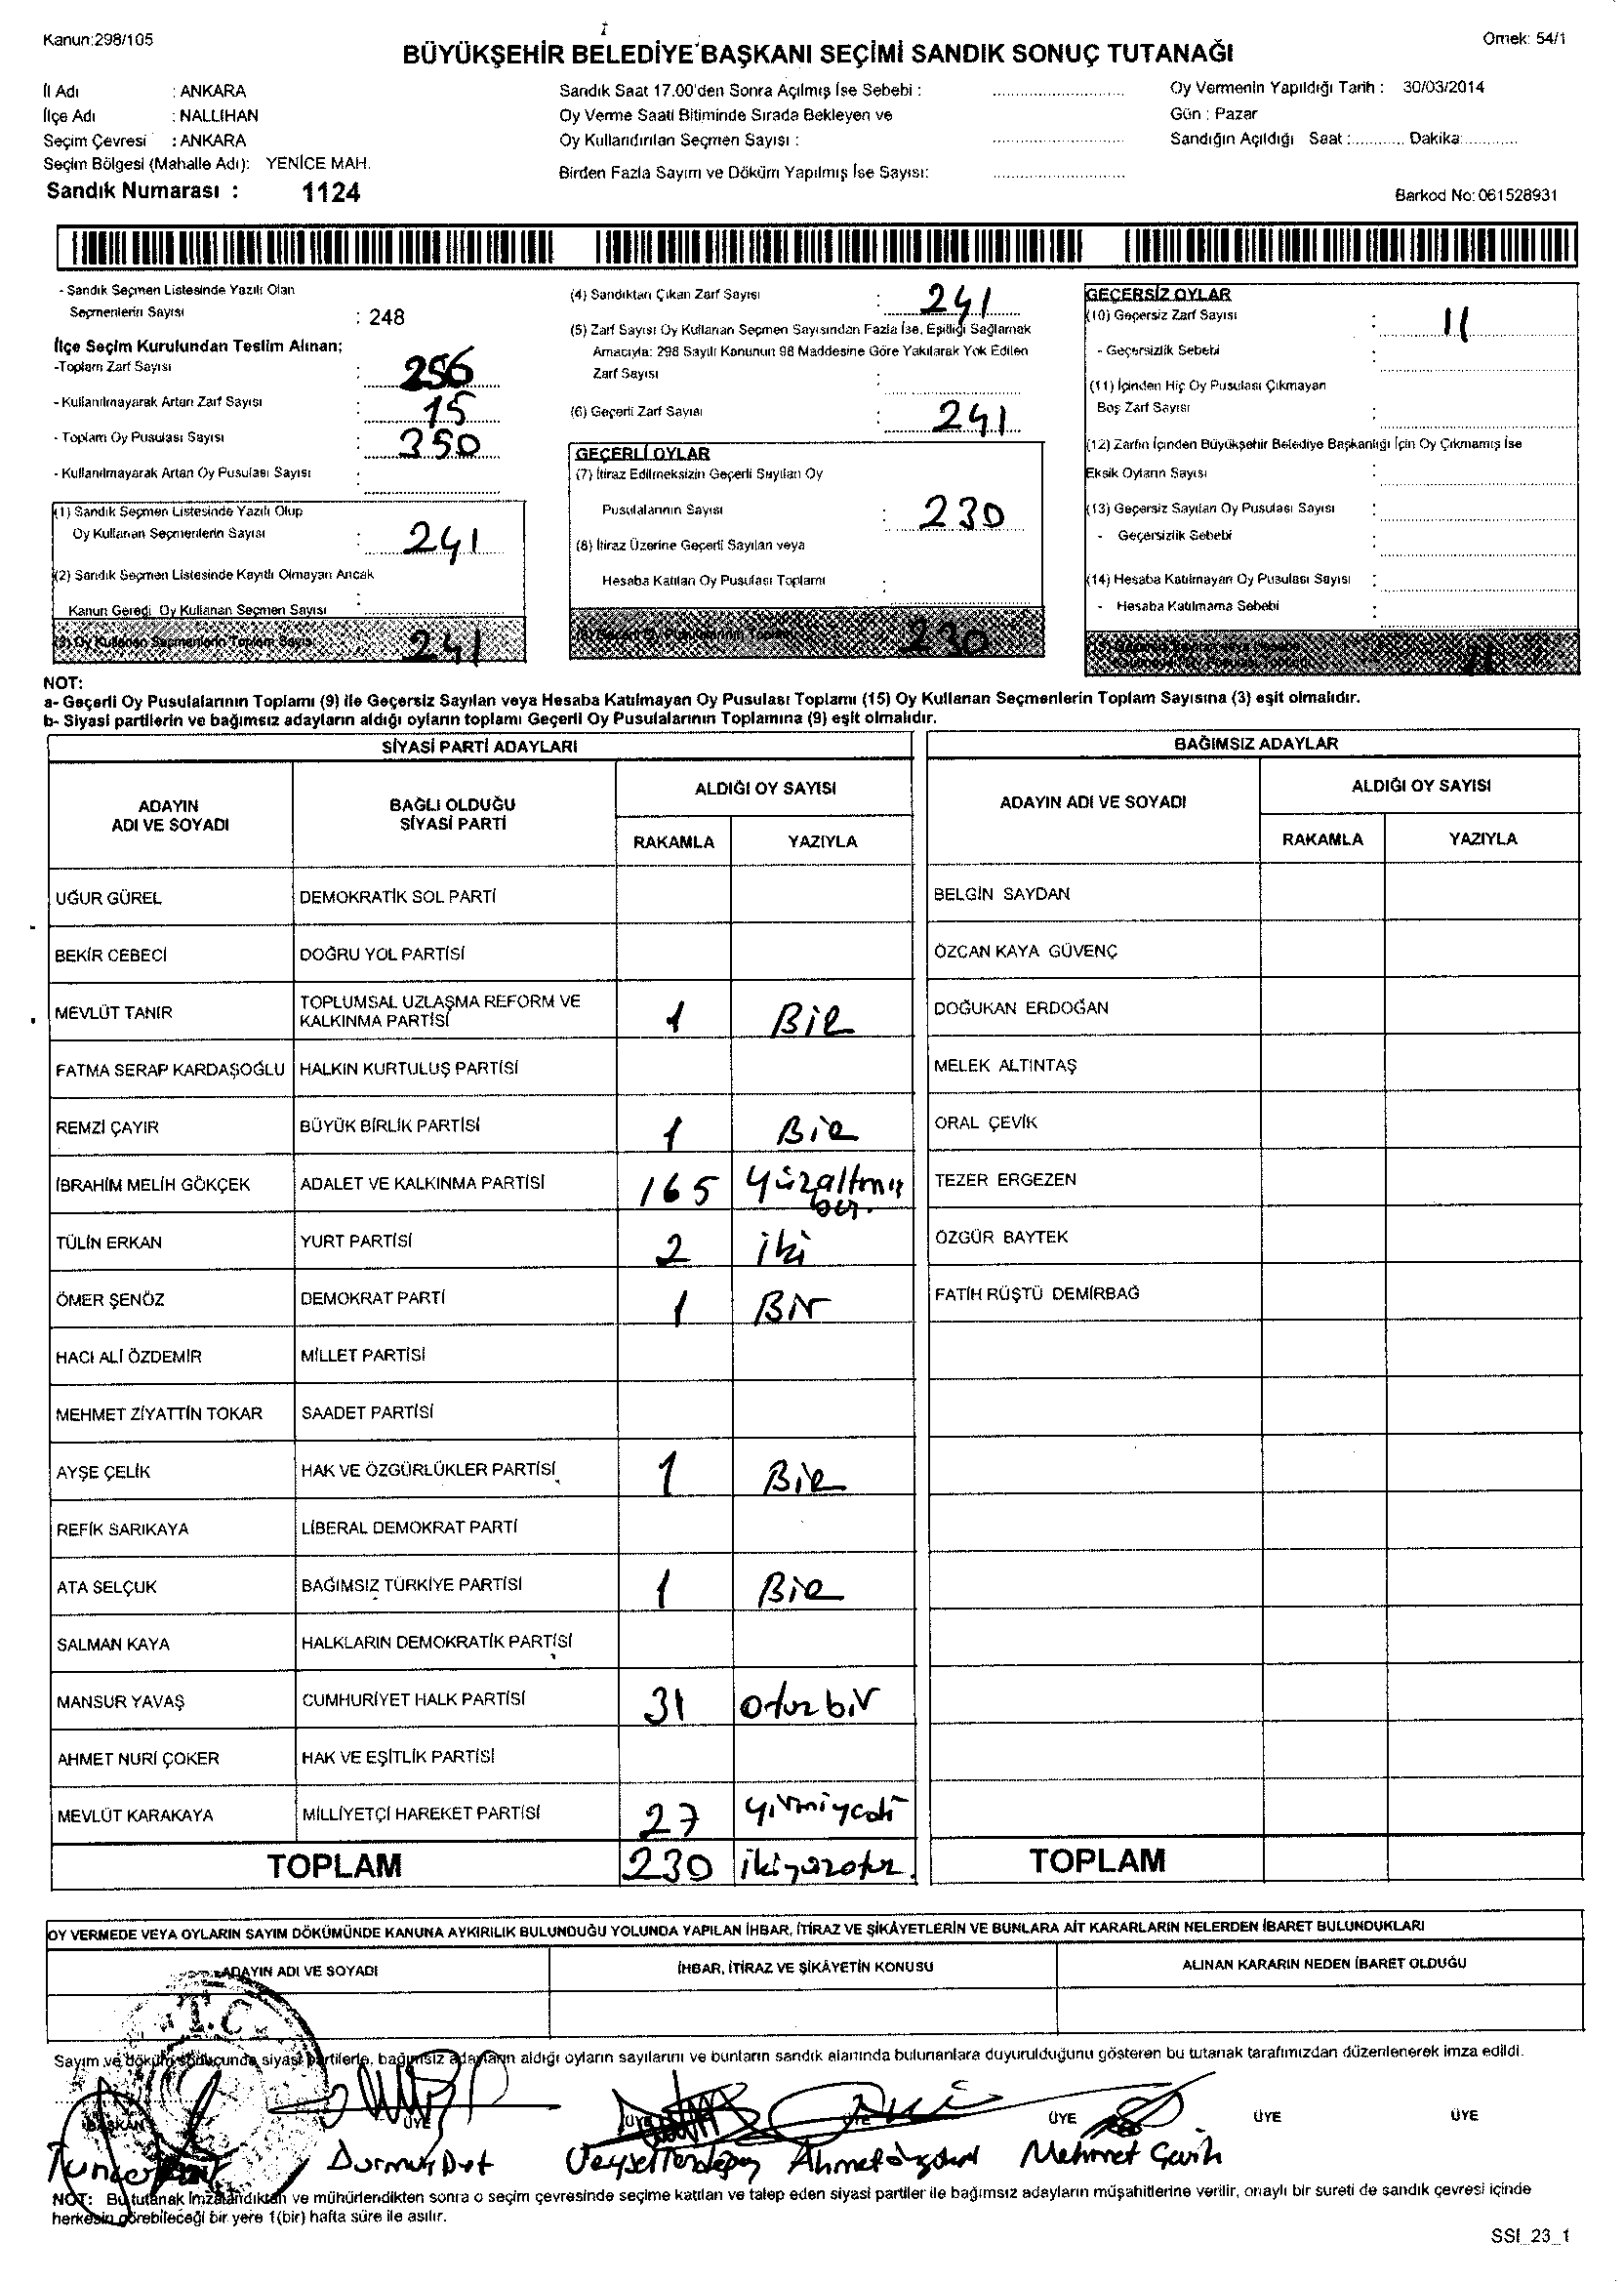 Kanun:298/105
Örnek: 54/1
BÜYÜKŞEHİR BELEDİYE BAŞKANI SEÇİMİ SANDIK SONUÇ TUTANAĞI
İl Adı : ANKARA
İlçe Adı : NALLIHAN
Seçim Çevresi : ANKARA
Seçim Bölgesi (Mahalle Adı): YENİCE MAH.
Sandık Numarası : 1124
Sandık Saat 17.00'den Sonra Açılmış İse Sebebi :
Oy Verme Saati Bitiminde Sırada Bekleyen ve
Oy Kullandırılan Seçmen Sayısı :
Birden Fazla Sayım ve Döküm Yapılmış İse Sayısı:
Oy Vermenin Yapıldığı Tarih : 30/03/2014
Gün : Pazar
Sandığın Açıldığı Saat :............ Dakika:............
Barkod No: 061528931
- Sandık Seçmen Listesinde Yazılı Olan
Seçmenlerin Sayısı : 248
İlçe Seçim Kurulundan Teslim Alınan;
-Toplam Zarf Sayısı : 256
- Kullanılmayarak Artan Zarf Sayısı : 15
- Toplam Oy Pusulası Sayısı : 350
- Kullanılmayarak Artan Oy Pusulası Sayısı :
(1) Sandık Seçmen Listesinde Yazılı Olup
Oy Kullanan Seçmenlerin Sayısı : 241
(2) Sandık Seçmen Listesinde Kayıtlı Olmayan Ancak
Kanun Geredi Oy Kullanan Seçmen Sayısı :
(3) Oy Kullanan Seçmenlerin Toplam Sayısı 241
(4) Sandıktan Çıkan Zarf Sayısı : 241
(5) Zarf Sayısı Oy Kullanan Seçmen Sayısından Fazla İse, Eşitliği Sağlamak
Amacıyla: 298 Sayılı Kanunun 98 Maddesine Göre Yakılarak Yok Edilen
Zarf Sayısı :
(6) Geçerli Zarf Sayısı : 241
GEÇERLİ OYLAR
(7) İtiraz Edilmeksizin Geçerli Sayılan Oy
Pusulalarının Sayısı : 230
(8) İtiraz Üzerine Geçerli Sayılan veya
Hesaba Katılan Oy Pusulası Toplamı :
230
GEÇERSİZ OYLAR
(10) Geçersiz Zarf Sayısı : 11
- Geçersizlik Sebebi :
(11) İçinden Hiç Oy Pusulası Çıkmayan
Boş Zarf Sayısı :
(12) Zarfın İçinden Büyükşehir Belediye Başkanlığı İçin Oy Çıkmamış İse
Eksik Oyların Sayısı :
(13) Geçersiz Sayılan Oy Pusulası Sayısı :
- Geçersizlik Sebebi :
(14) Hesaba Katılmayan Oy Pusulası Sayısı :
- Hesaba Katılmama Sebebi :
11
NOT:
a- Geçerli Oy Pusulalarının Toplamı (9) ile Geçersiz Sayılan veya Hesaba Katılmayan Oy Pusulası Toplamı (15) Oy Kullanan Seçmenlerin Toplam Sayısına (3) eşit olmalıdır.
b- Siyasi partilerin ve bağımsız adayların aldığı oyların toplamı Geçerli Oy Pusulalarının Toplamına (9) eşit olmalıdır.
SİYASİ PARTİ ADAYLARI
ADAYIN ADI VE SOYADI
BAĞLI OLDUĞU SİYASİ PARTİ
ALDIĞI OY SAYISI
RAKAMLA YAZIYLA
UĞUR GÜREL DEMOKRATİK SOL PARTİ
BEKİR CEBECİ DOĞRU YOL PARTİSİ
MEVLÜT TANIR TOPLUMSAL UZLAŞMA REFORM VE KALKINMA PARTİSİ 1 Bir
FATMA SERAP KARDAŞOĞLU HALKIN KURTULUŞ PARTİSİ
REMZİ ÇAYIR BÜYÜK BİRLİK PARTİSİ 1 Bir
İBRAHİM MELİH GÖKÇEK ADALET VE KALKINMA PARTİSİ 165 yüzaltmış beş.
TÜLİN ERKAN YURT PARTİSİ 2 iki
ÖMER ŞENÖZ DEMOKRAT PARTİ 1 Bir
HACI ALİ ÖZDEMİR MİLLET PARTİSİ
MEHMET ZİYATTİN TOKAR SAADET PARTİSİ
AYŞE ÇELİK HAK VE ÖZGÜRLÜKLER PARTİSİ 1 Bir
REFİK SARIKAYA LİBERAL DEMOKRAT PARTİ
ATA SELÇUK BAĞIMSIZ TÜRKİYE PARTİSİ 1 Bir
SALMAN KAYA HALKLARIN DEMOKRATİK PARTİSİ
MANSUR YAVAŞ CUMHURİYET HALK PARTİSİ 31 otuzbir
AHMET NURİ ÇOKER HAK VE EŞİTLİK PARTİSİ
MEVLÜT KARAKAYA MİLLİYETÇİ HAREKET PARTİSİ 27 yirmiyedi
TOPLAM 230 ikiyüzotuz.
BAĞIMSIZ ADAYLAR
ADAYIN ADI VE SOYADI
ALDIĞI OY SAYISI
RAKAMLA YAZIYLA
BELGİN SAYDAN
ÖZCAN KAYA GÜVENÇ
DOĞUKAN ERDOĞAN
MELEK ALTINTAŞ
ORAL ÇEVİK
TEZER ERGEZEN
ÖZGÜR BAYTEK
FATİH RÜŞTÜ DEMİRBAĞ
TOPLAM
OY VERMEDE VEYA OYLARIN SAYIM DÖKÜMÜNDE KANUNA AYKIRILIK BULUNDUĞU YOLUNDA YAPILAN İHBAR, İTİRAZ VE ŞİKÂYETLERİN VE BUNLARA AİT KARARLARIN NELERDEN İBARET BULUNDUKLARI
ADAYIN ADI VE SOYADI
İHBAR, İTİRAZ VE ŞİKÂYETİN KONUSU
ALINAN KARARIN NEDEN İBARET OLDUĞU
T.C.
Sayım ve döküm sonucunda siyasi partilerle, bağımsız adayların aldığı oyların sayılarını ve bunların sandık alanında bulunanlara duyurulduğunu gösteren bu tutanak tarafımızdan düzenlenerek imza edildi.
BAŞKAN ÜYE ÜYE ÜYE ÜYE ÜYE ÜYE
Durmuş Dut Mehmet Çevik
NOT: Bu tutanak imzalandıktan ve mühürlendikten sonra o seçim çevresinde seçime katılan ve talep eden siyasi partiler ile bağımsız adayların müşahitlerine verilir, onaylı bir sureti de sandık çevresi içinde
herkesin görebileceği bir yere 1(bir) hafta süre ile asılır.
SSI_23_1